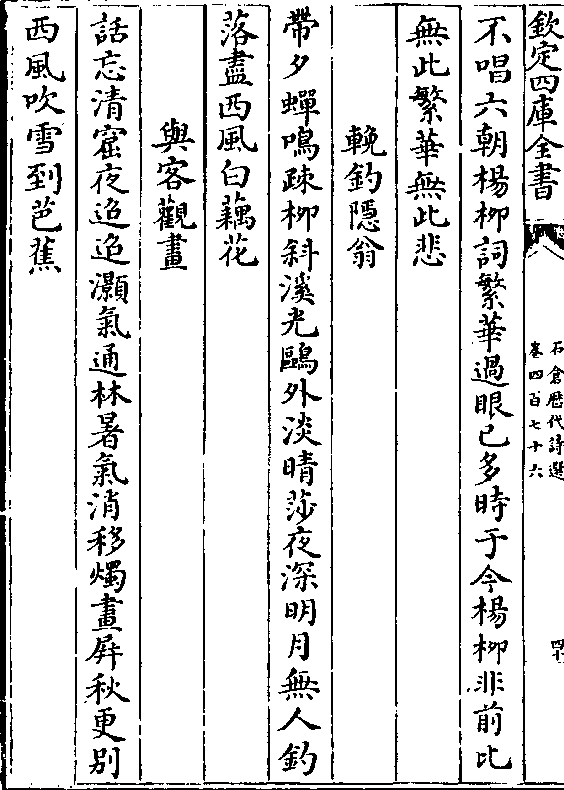 欽定四庫全書
石倉歴代詩選
卷四百七十六
不唱六朝楊柳詞繁華過眼已多時于今楊柳非前比
無此繁華無此悲
輓釣隱翁
帶夕蟬鳴疎柳斜溪光鷗外淡晴莎夜深明月無人釣
落盡西風白藕花
與客觀畫
話忘清窟夜迢迢灝氣通林暑氣消移燭畫屛秋更别
西風吹雪到芭蕉